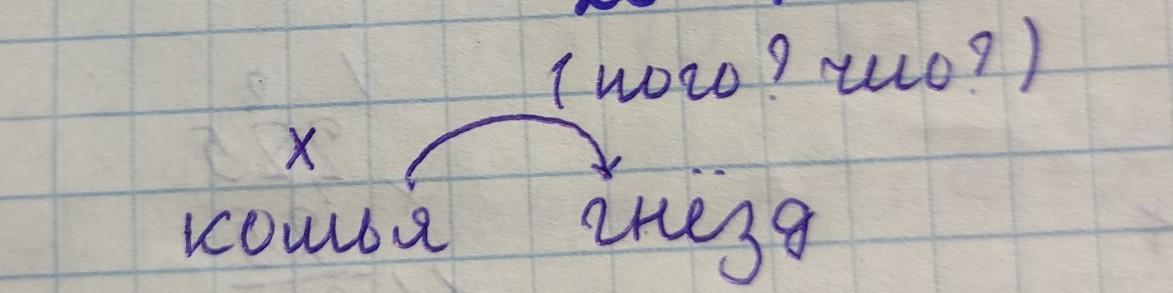 (кого? что?)
х
комья гнёзд